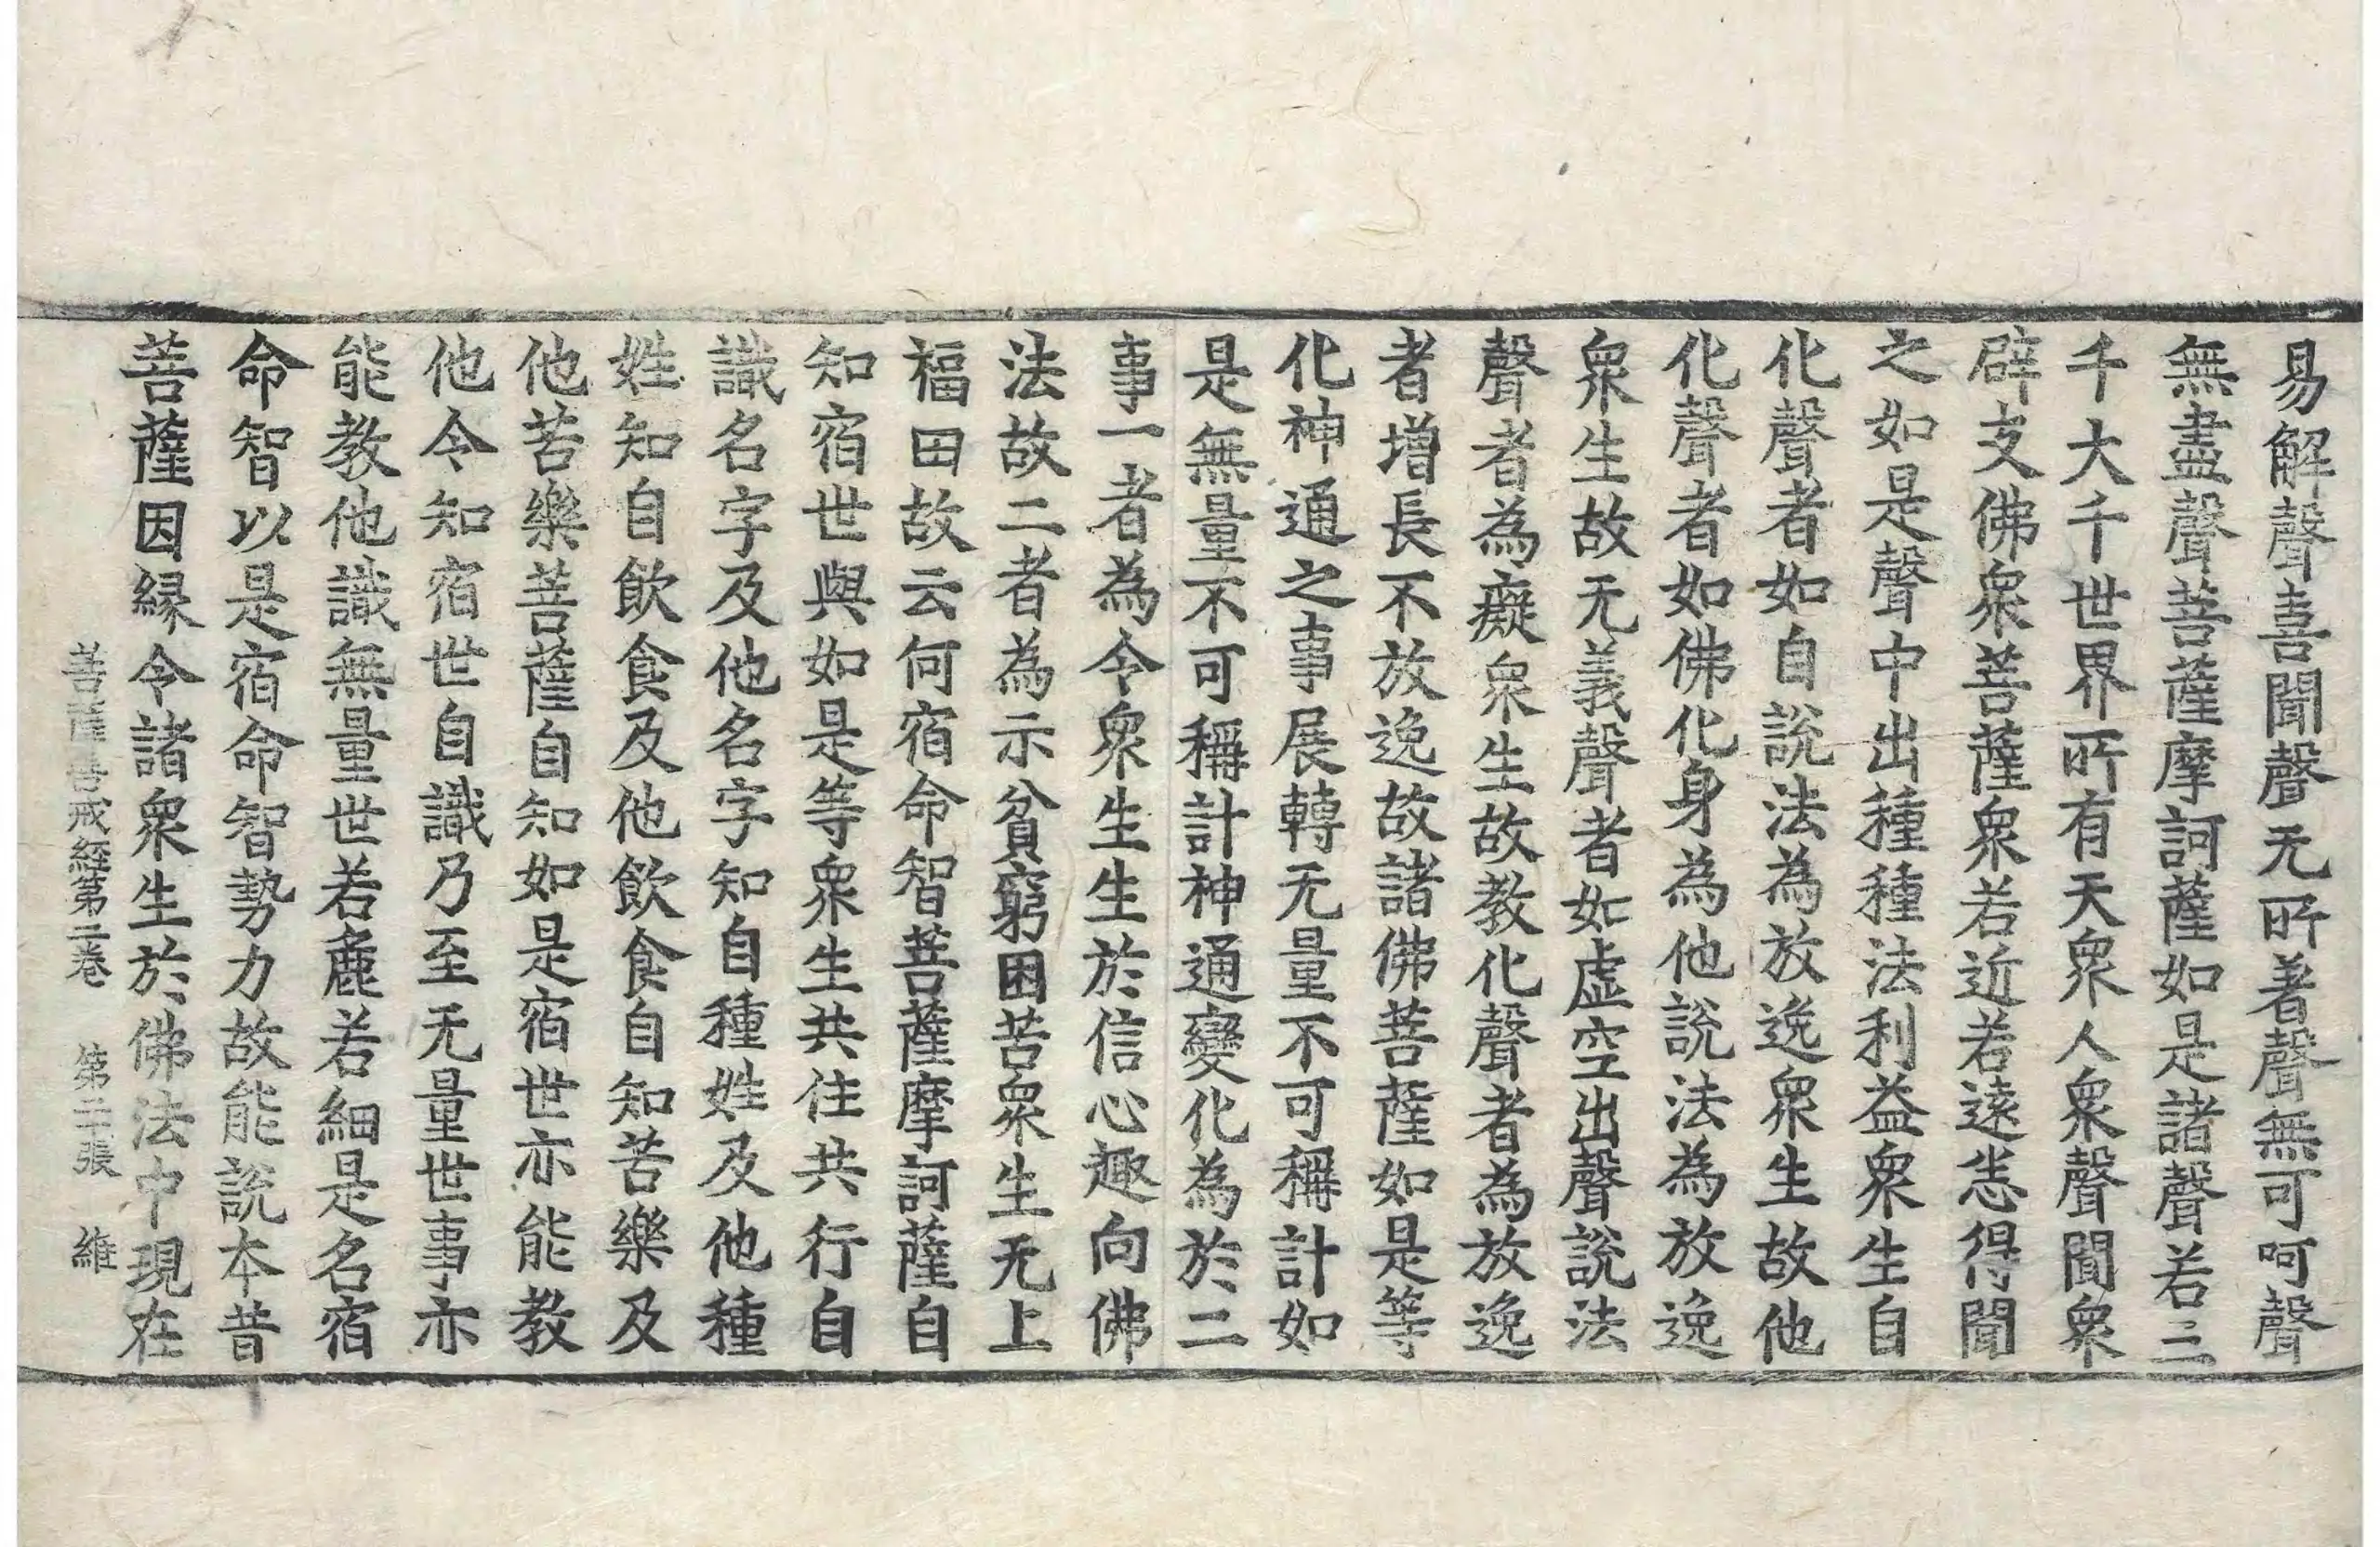 易解聲喜聞聲无所著聲無可呵聲
無盡聲菩薩摩訶薩如是諸聲若三
千大千世界所有天衆人衆聲聞衆
辟支佛衆菩薩衆若近若遠悉得聞
之如是聲中出種種法利益衆生自
化聲者如自說法為放逸衆生故他
化聲者如佛化身為他說法為放逸
衆生故无義聲者如虛空出聲說法
聲者為癡衆生故教化聲者為放逸
者增長不放逸故諸佛菩薩如是等
化神通之事展轉无量不可稱計如
是無量不可稱計神通變化為於二
事一者為令衆生生於信心趣向佛
法故二者為示貧窮困苦衆生无上
福田故云何宿命智菩薩摩訶薩自
知宿世與如是等衆生共住共行自
識名字及他名字知自種姓及他種
姓知自飲食及他飲食自知苦樂及
他苦樂菩薩自知如是宿世亦能教
他令知宿世自識乃至无量世事亦
能教他識無量世若麁若細是名宿
命智以是宿命智勢力故能說本昔
菩薩因緣令諸衆生於佛法中現在
菩薩善戒經第二卷 第二張 維